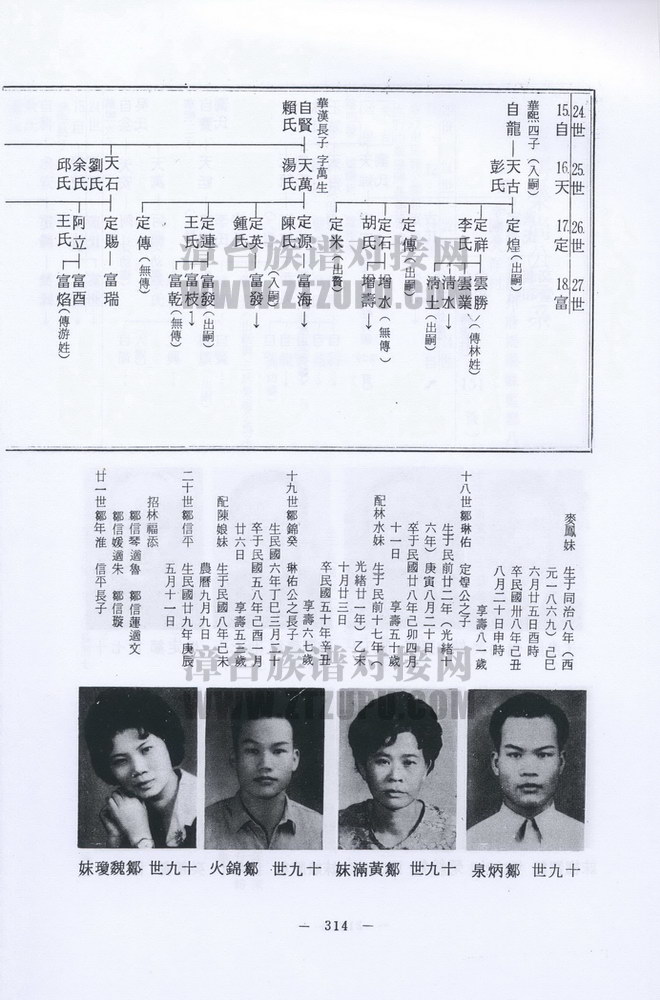 15. 24.
自 世
16. 25.
天 世
17. 26.
定 世
18. 27.
富 世
華熙四子(入嗣)
自龍 天古 定煌(出嗣)
彭氏
定祥 雲勝
李氏 雲業 (傳林姓)
清水
清土(出嗣)
定傳(出嗣)
定石 增水(無傳)
胡氏 增壽
定米(出養)
華漢長子 字萬生
自賢 天萬 定源 富海
賴氏 湯氏 陳氏
(入嗣)
定英 富發
鍾氏
定連 富發(出嗣)
王氏 富枝
富乾(無傳)
定傳(無傳)
天石 定賜 富瑞
劉氏
余氏 阿立 富酉
邱氏 王氏 富焰(傳游姓)
漳台族谱对接网
WWW.ZTZUPU.COM
麥鳳妹 生于同治八年(西
元一八六九)己巳
六月廿五日酉時
卒民國卅八年己丑
八月二十日申時
享壽八一歲
十八世鄒琳佑 定尊公之子
生于民前廿二年(光緒十
六年)庚寅八月二十日
卒于民國廿八年己卯四月
十一日 享壽五十歲
配林水妹 生于民前十七年(
光緒廿一年)乙未
十月廿三日
卒民國五十年辛丑
享壽六七歲
十九世鄒錦癸 琳佑公之長子
生民國六年丁巳三月二十
卒于民國五八年己酉一月
廿六日 享壽五三歲
配陳娘妹 生于民國八年己未
農曆九月九日
二十世鄒信平 生民國廿九年庚辰
五月十一日
招林福添
鄒信琴適魯 鄒信蓮適文
鄒信媛適朱 鄒信璇
廿一世鄒年淮 信平長子
漳台族谱对接网
WWW.ZTZUPU.COM
十九世 鄒炳泉
十九世 鄒黃滿妹
十九世 鄒錦火
十九世 鄒魏瓊妹
— 314 —